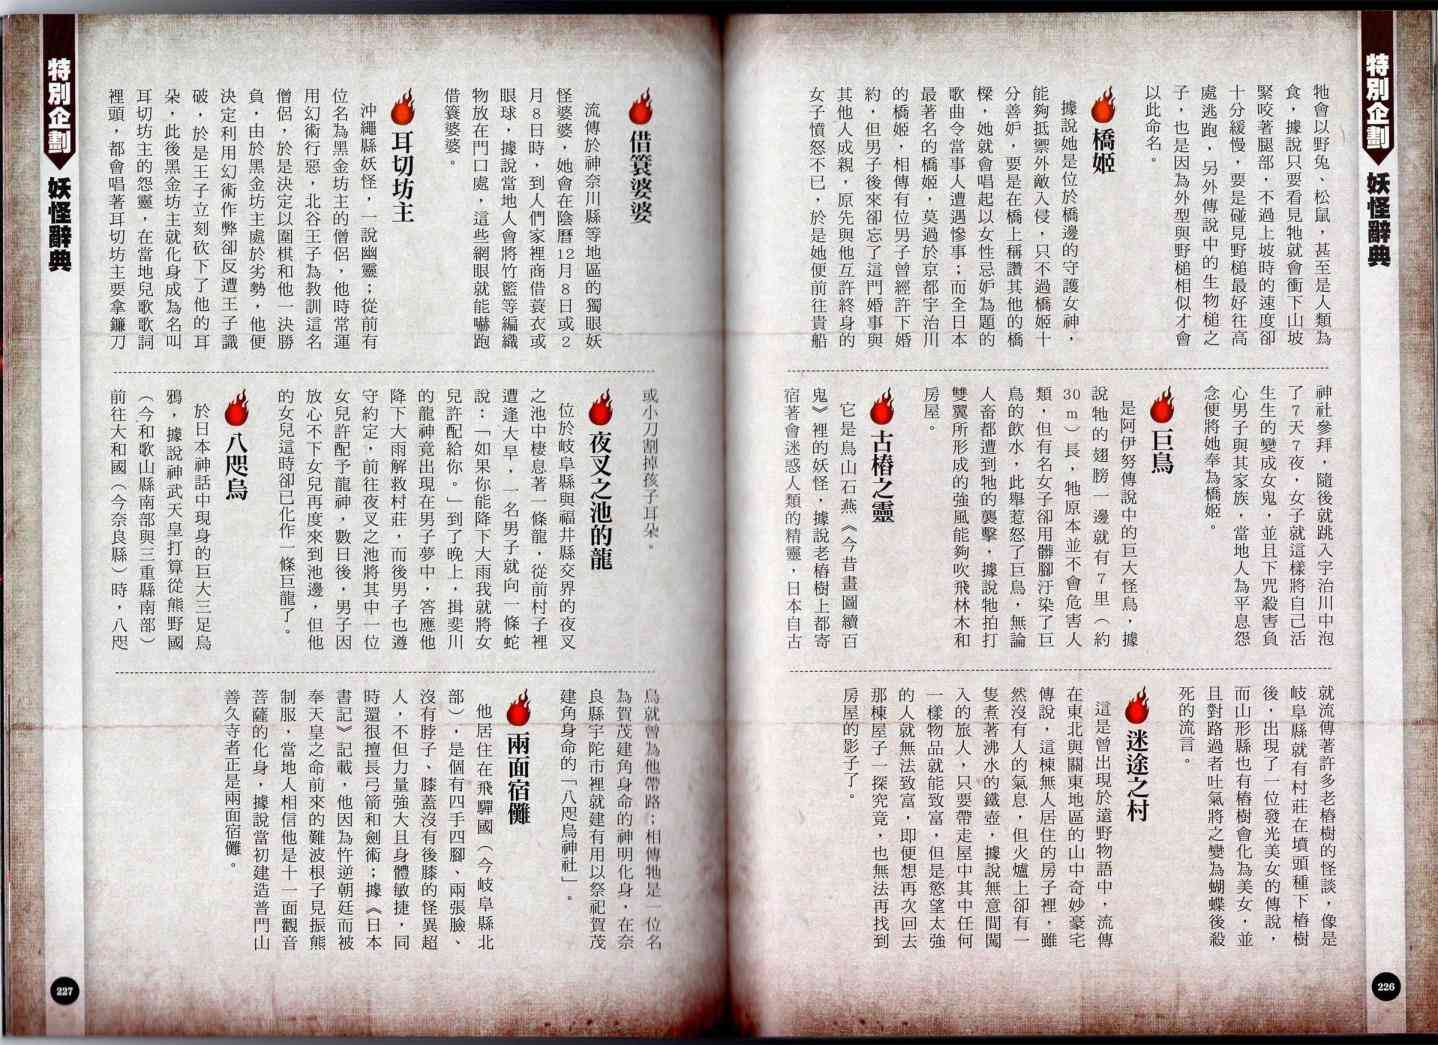 特別企劃
妖怪辭典
牠會以野兔、松鼠，甚至是人類為
食，據說只要看見牠就會衝下山坡
緊咬著腿部，不過上坡時的速度卻
十分緩慢，要是碰見野槌最好往高
處逃跑，另外傳說中的生物槌之
子，也是因為外型與野槌相似才會
以此命名。
橋姬
據說她是位於橋邊的守護女神，
能夠抵禦外敵入侵，只不過橋姬十
分善妒，要是在橋上稱讚其他的橋
樑，她就會唱起以女性忌妒為題的
歌曲令當事人遭遇慘事；而全日本
最著名的橋姬，莫過於京都宇治川
的橋姬，相傳有位男子曾經許下婚
約，但男子後來卻忘了這門婚事與
其他人成親，原先與他互許終身的
女子憤怒不已，於是她便前往貴船
神社參拜，隨後就跳入宇治川中泡
了7天7夜，女子就這樣將自己活
生生的變成女鬼，並且下咒殺害負
心男子與其家族，當地人為平息怨
念便將她奉為橋姬。
巨鳥
是阿伊努傳說中的巨大怪鳥，據
說牠的翅膀一邊就有7里（約
30m）長，牠原本並不會危害人
類，但有名女子卻用髒腳汙染了巨
鳥的飲水，此舉惹怒了巨鳥，無論
人畜都遭到牠的襲擊，據說牠拍打
雙翼所形成的強風能夠吹飛林木和
房屋。
古樁之靈
它是鳥山石燕《今昔畫圖續百
鬼》裡的妖怪，據說老樁樹上都寄
宿著會迷惑人類的精靈，日本自古
就流傳著許多老樁樹的怪談，像是
岐阜縣就有村莊在墳頭種下樁樹
後，出現了一位發光美女的傳說，
而山形縣也有樁樹會化為美女，並
且對路過者吐氣將之變為蝴蝶後殺
死的流言。
迷途之村
這是曾出現於遠野物語中，流傳
在東北與關東地區的山中奇妙豪宅
傳說，這棟無人居住的房子裡，雖
然沒有人的氣息，但火爐上卻有一
隻煮著沸水的鐵壺，據說無意間闖
入的旅人，只要帶走屋中其中任何
一樣物品就能致富，但是慾望太強
的人就無法致富，即便想再次回去
那棟屋子一探究竟，也無法再找到
房屋的影子了。
226
借簑婆婆
流傳於神奈川縣等地區的獨眼妖
怪婆婆，她會在陰曆12月8日或2
月8日時，到人們家裡商借簑衣或
眼球，據說當地人會將竹籃等編織
物放在門口處，這些網眼就能嚇跑
借簑婆婆。
耳切坊主
沖繩縣妖怪，一說幽靈；從前有
位名為黑金坊主的僧侶，他時常運
用幻術行惡，北谷王子為教訓這名
僧侶，於是決定以圍棋和他一決勝
負，由於黑金坊主處於劣勢，他便
決定利用幻術作弊卻反遭王子識
破，於是王子立刻砍下了他的耳
朵，此後黑金坊主就化身成為名叫
耳切坊主的怨靈，在當地兒歌歌詞
裡頭，都會唱著耳切坊主要拿鐮刀
或小刀割掉孩子耳朵。
夜叉之池的龍
位於岐阜縣與福井縣交界的夜叉
之池中棲息著一條龍，從前村子裡
遭逢大旱，一名男子就向一條蛇
說：「如果你能降下大雨我就將女
兒許配給你。」到了晚上，揖斐川
的龍神竟出現在男子夢中，答應他
降下大雨解救村莊，而後男子也遵
守約定，前往夜叉之池將其中一位
女兒許配予龍神，數日後，男子因
放心不下女兒再度來到池邊，但他
的女兒這時卻已化作一條巨龍了。
八咫烏
於日本神話中現身的巨大三足烏
鴉，據說神武天皇打算從熊野國
（今和歌山縣南部與三重縣南部）
前往大和國（今奈良縣）時，八咫
烏就曾為他帶路；相傳牠是一位名
為賀茂建角身命的神明化身，在奈
良縣宇陀市裡就建有用以祭祀賀茂
建角身命的「八咫烏神社」。
兩面宿儺
他居住在飛驒國（今岐阜縣北
部），是個有四手四腳、兩張臉、
沒有脖子、膝蓋沒有後膝的怪異超
人，不但力量強大且身體敏捷，同
時還很擅長弓箭和劍術；據《日本
書記》記載，他因為忤逆朝廷而被
奉天皇之命前來的難波根子見振熊
制服，當地人相信他是十一面觀音
菩薩的化身，據說當初建造普門山
善久寺者正是兩面宿儺。
特別企劃
妖怪辭典
227